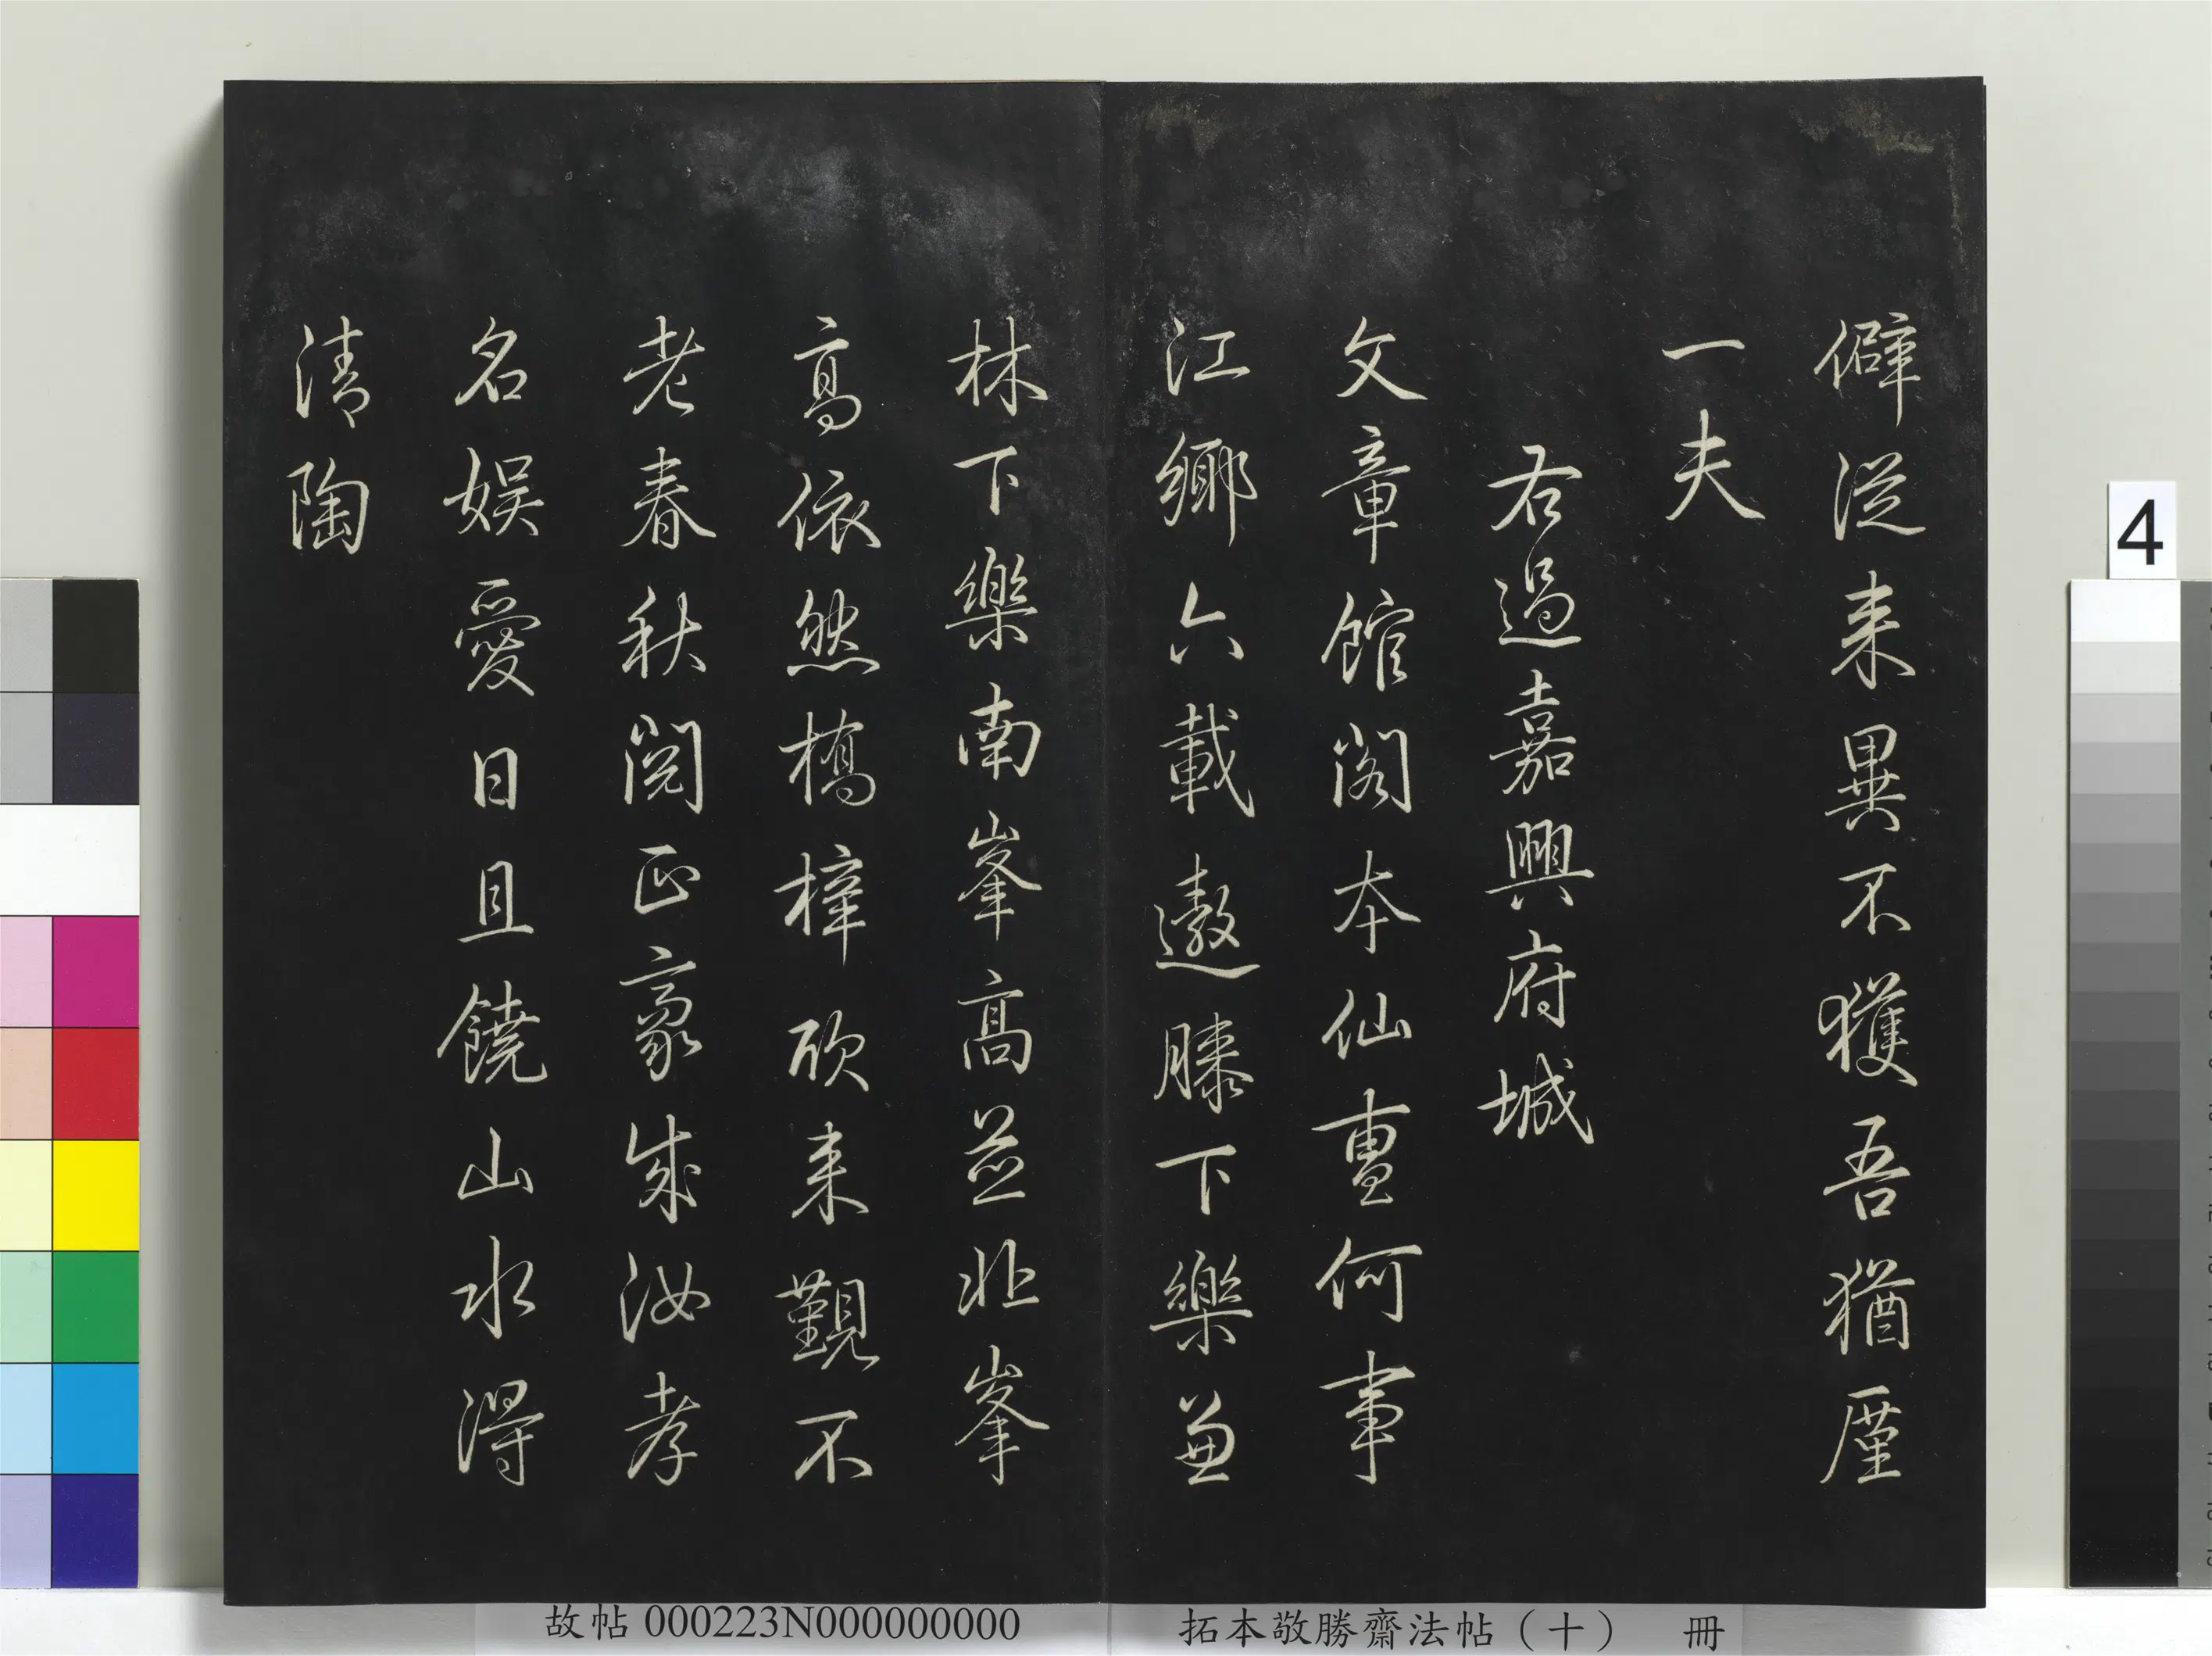 僻從来異不獲吾猶廑
一夫
右過嘉興府城
文章館閣本仙曺何事
江鄉六載遨膝下樂兼
林下樂南峯高並北峯
高依然橋梓欣来覲不
老春秋閱正豪成汝孝
名娛愛日且饒山水得
清陶
4
故帖 000223N000000000
拓本敬勝齋法帖（十） 冊